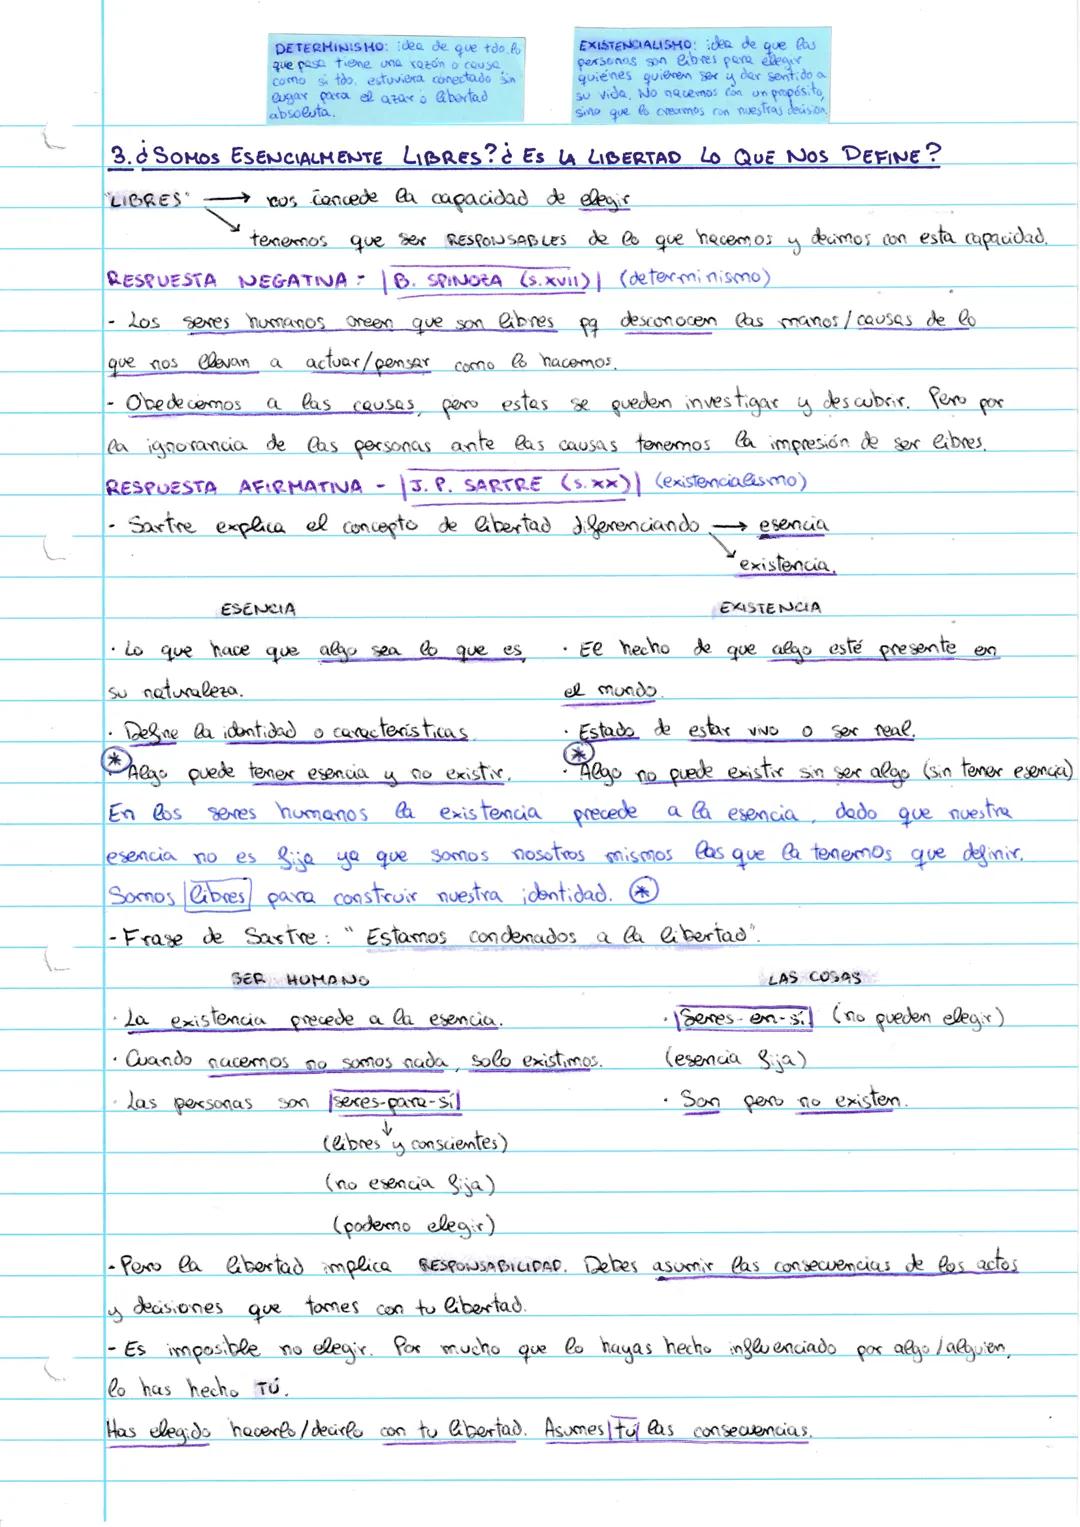 DETERMINISMO: idea de que tdo lo
que pasa tiene una razón o causa
como si tdo. estuviera conectado sin
lugar para el azar o libertad
absoluta.
EXISTENCIALISMO: idea de que las
personas son libres para elegir
quiénes quieren ser y dar sentido a
su vida. No nacemos con un propósito,
sino que lo creamos con nuestras decisión
3. ¿SOMOS ESENCIALMENTE LIBRES? ¿ES LA LIBERTAD LO QUE NOS DEFINE?
"LIBRES" → nos concede la capacidad de elegir
tenemos que ser RESPONSABLES de lo que hacemos y decimos con esta capacidad.
RESPUESTA NEGATIVA - |B. SPINOZA (S.XVII)| (determinismo)
- Los seres humanos creen que son libres pq desconocen las manos/causas de lo
que nos llevan a actuar/pensar como lo hacemos.
- Obedecemos a las causas, pero estas se pueden investigar y descubrir. Pero por
la ignorancia de las personas ante las causas tenemos la impresión de ser libres.
RESPUESTA AFIRMATIVA - |J. P. SARTRE (S. XX)| (existencialismo)
- Sartre explica el concepto de libertad diferenciando → esencia
existencia.
ESENCIA EXISTENCIA
· Lo que hace que algo sea lo que es, · El hecho de que algo esté presente en
su naturaleza. el mundo.
· Define la identidad o características. · Estado de estar vivo o ser real.
* · Algo puede tener esencia y no existir. * · Algo no puede existir sin ser algo (sin tener esencia)
En los seres humanos la existencia precede a la esencia, dado que nuestra
esencia no es fija ya que somos nosotros mismos las que la tenemos que definir.
Somos |libres| para construir nuestra identidad. *
- Frase de Sartre: "Estamos condenados a la libertad".
SER HUMANO LAS COSAS
· La existencia precede a la esencia. · |Seres-en-sí| (no pueden elegir)
· Cuando nacemos no somos nada, solo existimos. (esencia fija)
· Las personas son |seres-para-sí| · Son pero no existen.
↓
(libres y conscientes)
(no esencia fija)
(podemo elegir)
- Pero la libertad implica RESPONSABILIDAD. Debes asumir las consecuencias de los actos
y decisiones que tomes con tu libertad.
- Es imposible no elegir. Por mucho que lo hayas hecho influenciado por algo/alguien,
lo has hecho TÚ.
Has elegido hacerlo/decirlo con tu libertad. Asumes |tú| las consecuencias.